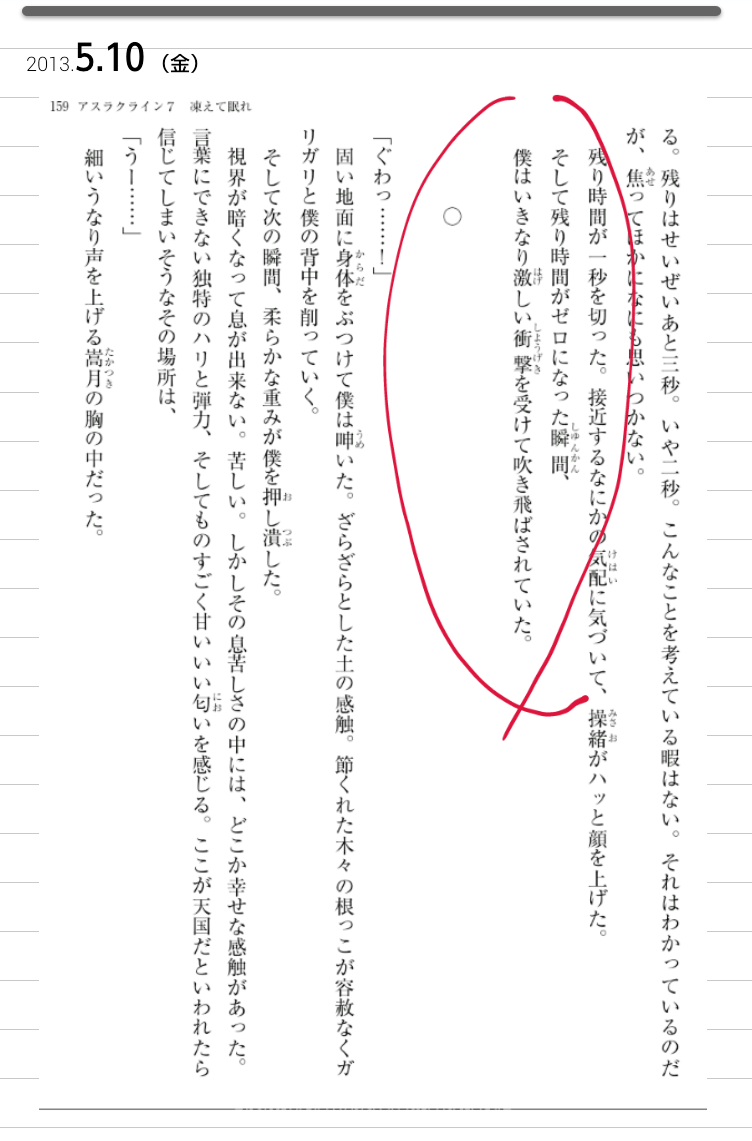 2013.5.10（金）
159 アスラクライン7 凍えて眠れ
る。残りはせいぜいあと三秒。いや二秒。こんなことを考えている暇はない。それはわかっているのだ
が、焦ってほかになにも思いつかない。
残り時間が一秒を切った。接近するなにかの気配に気づいて、操緒がハッと顔を上げた。
そして残り時間がゼロになった瞬間、
僕はいきなり激しい衝撃を受けて吹き飛ばされていた。
○
「ぐわっ……！」
固い地面に身体をぶつけて僕は呻いた。ざらざらとした土の感触。節くれた木々の根っこが容赦なくガ
リガリと僕の背中を削っていく。
そして次の瞬間、柔らかな重みが僕を押し潰した。
視界が暗くなって息が出来ない。苦しい。しかしその息苦しさの中には、どこか幸せな感触があった。
言葉にできない独特のハリと弾力、そしてものすごく甘いいい匂いを感じる。ここが天国だといわれたら
信じてしまいそうなその場所は、
「うー……」
細いうなり声を上げる嵩月の胸の中だった。